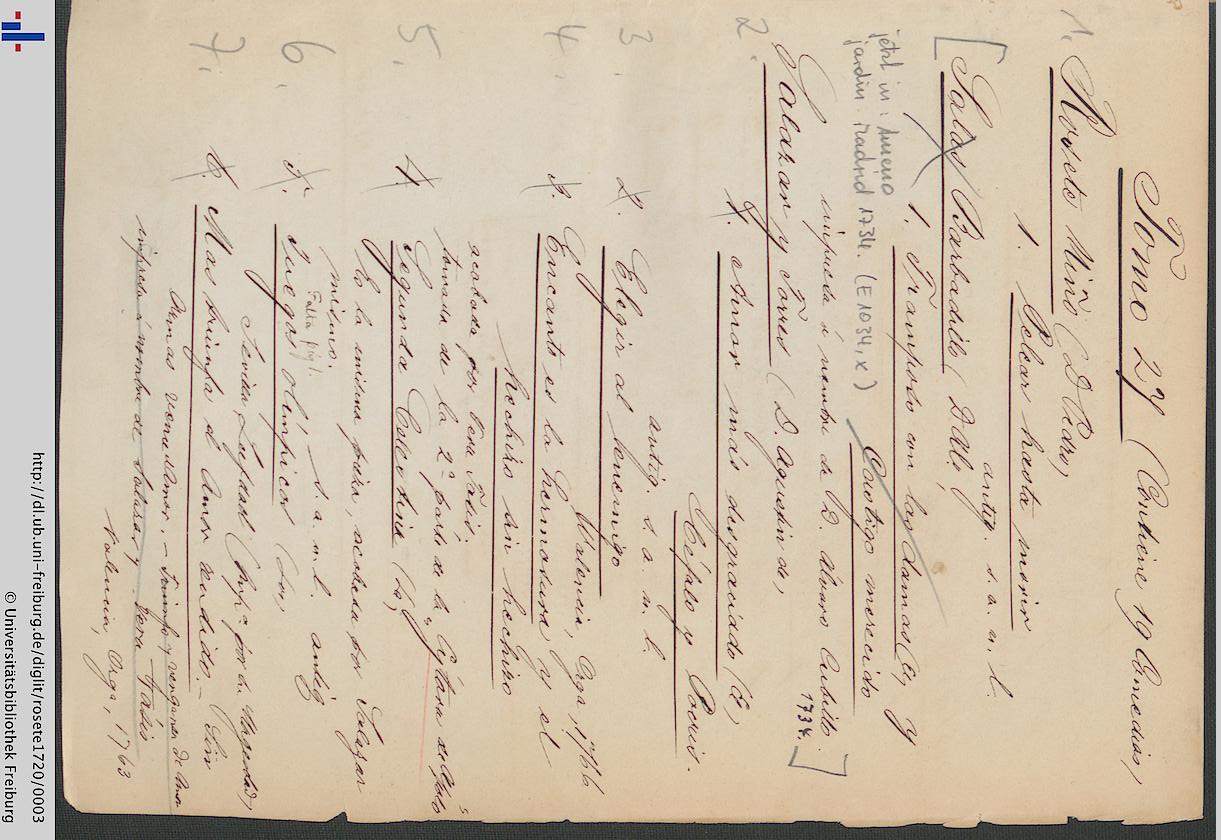 Tomo 27 (Contiene 19 Comedias)
1. Rosete Niño (D. Pedro)
1. Pelear hasta morir
antig. s. a. n. l.
[Salas Barbadillo (D. Al.)
1. Trampodo con las Damas (El) y
Castigo merecido
jetzt in: Ameno
jardin. Madrid 1734. (E 1034, x)
impresa á nombre de D. Alvaro Cubillo. 1734.]
2. Salazar y Torres (D. Agustin de)
1. Amor más desgraciado (El),
Céfalo y Pocris.
antig. s. a. n. l.
3. 2. Elegir al enemigo
Valencia, Orga, 1766
4. 3. Encanto es la hermosura, y el
hechizo sin hechizo
acabada por Vera Tasis.
tomada de la 2ª parte de la "Cytara de Apolo"
5. 4. Segunda Celestina (La)
Es la misma pieza, acabada por Salazar
mismo.
s. a. n. l. antig
6. 5. Juegos olímpicos (Los)
Falta
7. 6. Mas triunfa el Amor rendido. – Sin
Armas vencedoras. – Triunfo y venganza de Amor
impresa á nombre de Salazar y Vera Tasis
Valencia, Orga, 1763
http://dl.ub.uni-freiburg.de/diglit/rosete1720/0003
© Universitätsbibliothek Freiburg